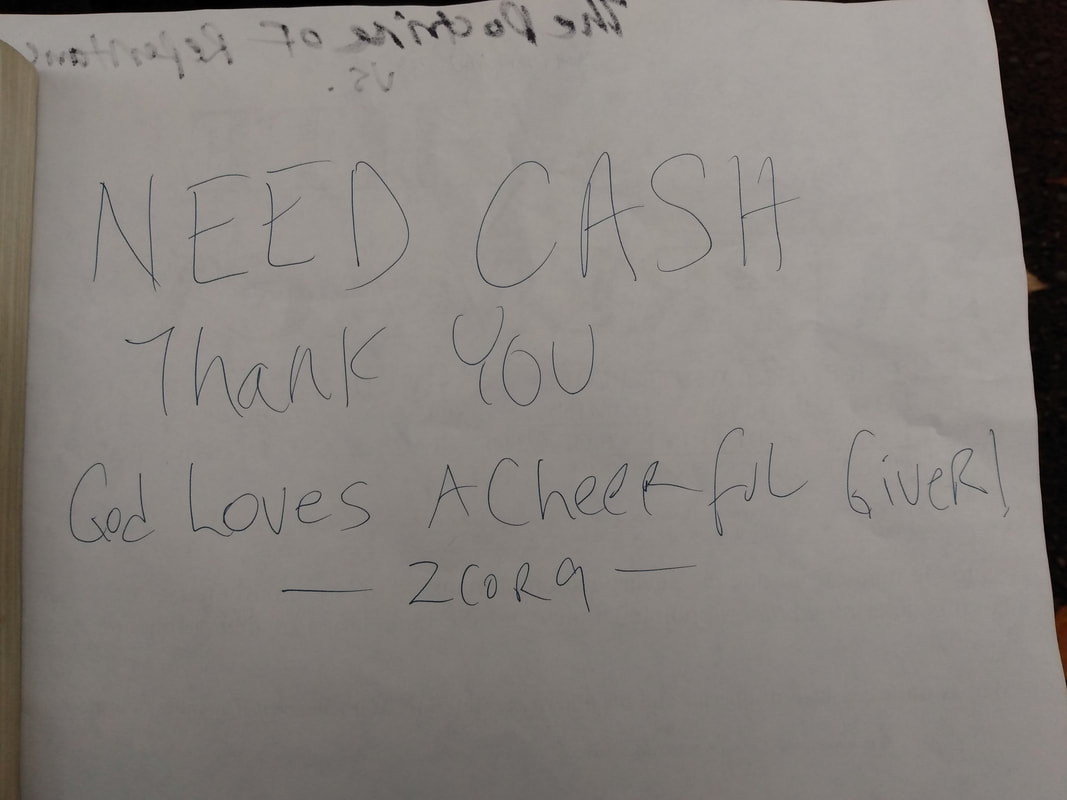 The Doctrine of Repentanc
vs.
NEED CASH
Thank YOU
God Loves A CheeRful GiveR!
— 2 COR 9 —